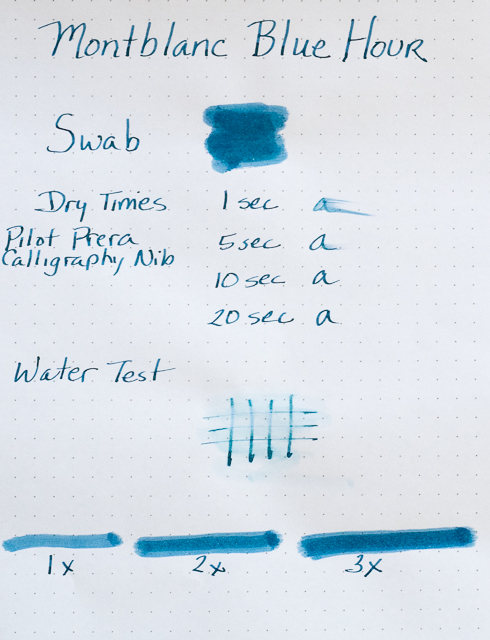 Montblanc Blue Hour
Swab
Dry Times 1 sec a
Pilot Prera 5 sec a
Calligraphy Nib
10 sec a
20 sec a
Water Test
1x 2x 3x